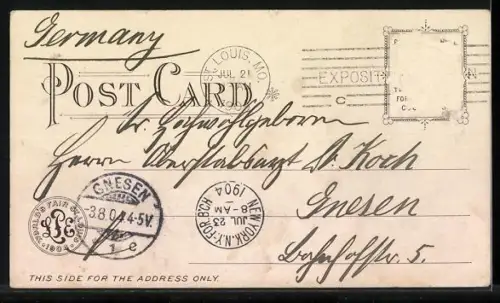 Germany
ST. LOUIS, MO.
JUL 21
EXPOSIT N
C
POST CARD.
Sr. Hochwohlgeboren
Herrn Oberstabsarzt Dr. Koch
Gnesen
Bahnhofstr. 5.
GNESEN
3.8.04.4-5V.
1 e
NEW YORK, N.Y.-FOR.BCH.
JUL 23
8-AM
1904
WORLD'S FAIR
THIS SIDE FOR THE ADDRESS ONLY.